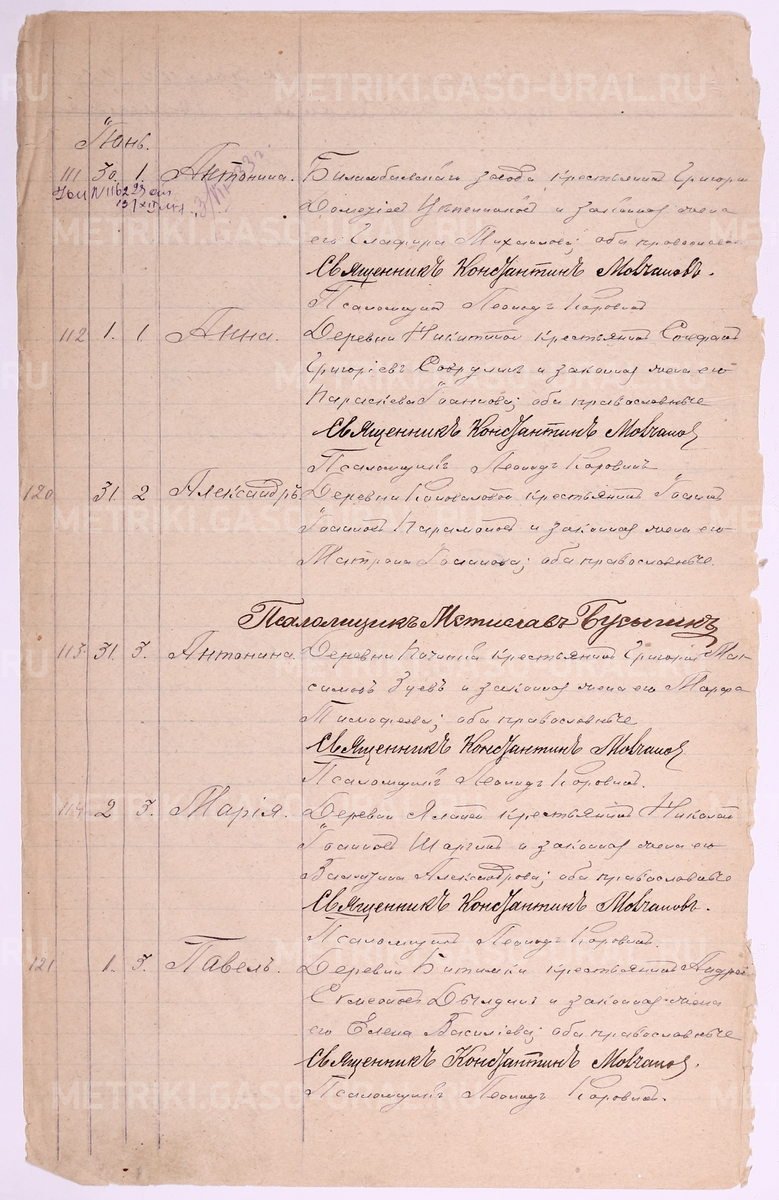 METRIKI.GASO-URAL.RU
Іюнь.
111 30. 1. Антонина. Билимбаевскаго завода крестьянинъ Григорій
ЗVI 33г.
его Глафира Михаилова; оба православные
Священникъ Константинъ Мовчановъ.
Псаломщикъ Леонидъ Коровинъ
112 1. 1. Анна. Деревни Никитиной крестьянинъ
Григоріевъ и законная жена его
Параскева Іоаннова; оба православные
Священникъ Константинъ Мовчановъ
Псаломщикъ Леонидъ Коровинъ
120 31. 2 Александръ. Деревни Коноваловой крестьянинъ Іоаннъ
Іоанновъ Парамоновъ и законная жена его
Матрона Іоаннова; оба православные.
Псаломщикъ Мстиславъ Бусыгинъ
113. 31. 3. Антонина. Деревни крестьянинъ Григорій Мак-
симовъ Зуевъ и законная жена его Марфа
Тимофеева; оба православные
Священникъ Константинъ Мовчановъ
Псаломщикъ Леонидъ Коровинъ.
114 2 3. Марія. Деревни крестьянинъ Николай
Іоанновъ и законная жена его
Валентина Александрова; оба православные
Священникъ Константинъ Мовчановъ.
Псаломщикъ Леонидъ Коровинъ.
121 1. 3. Павелъ. Деревни Битимки крестьянинъ Андрей
Симеоновъ и законная жена
его Елена Василіева; оба православные
Священникъ Константинъ Мовчановъ.
Псаломщикъ Леонидъ Коровинъ.